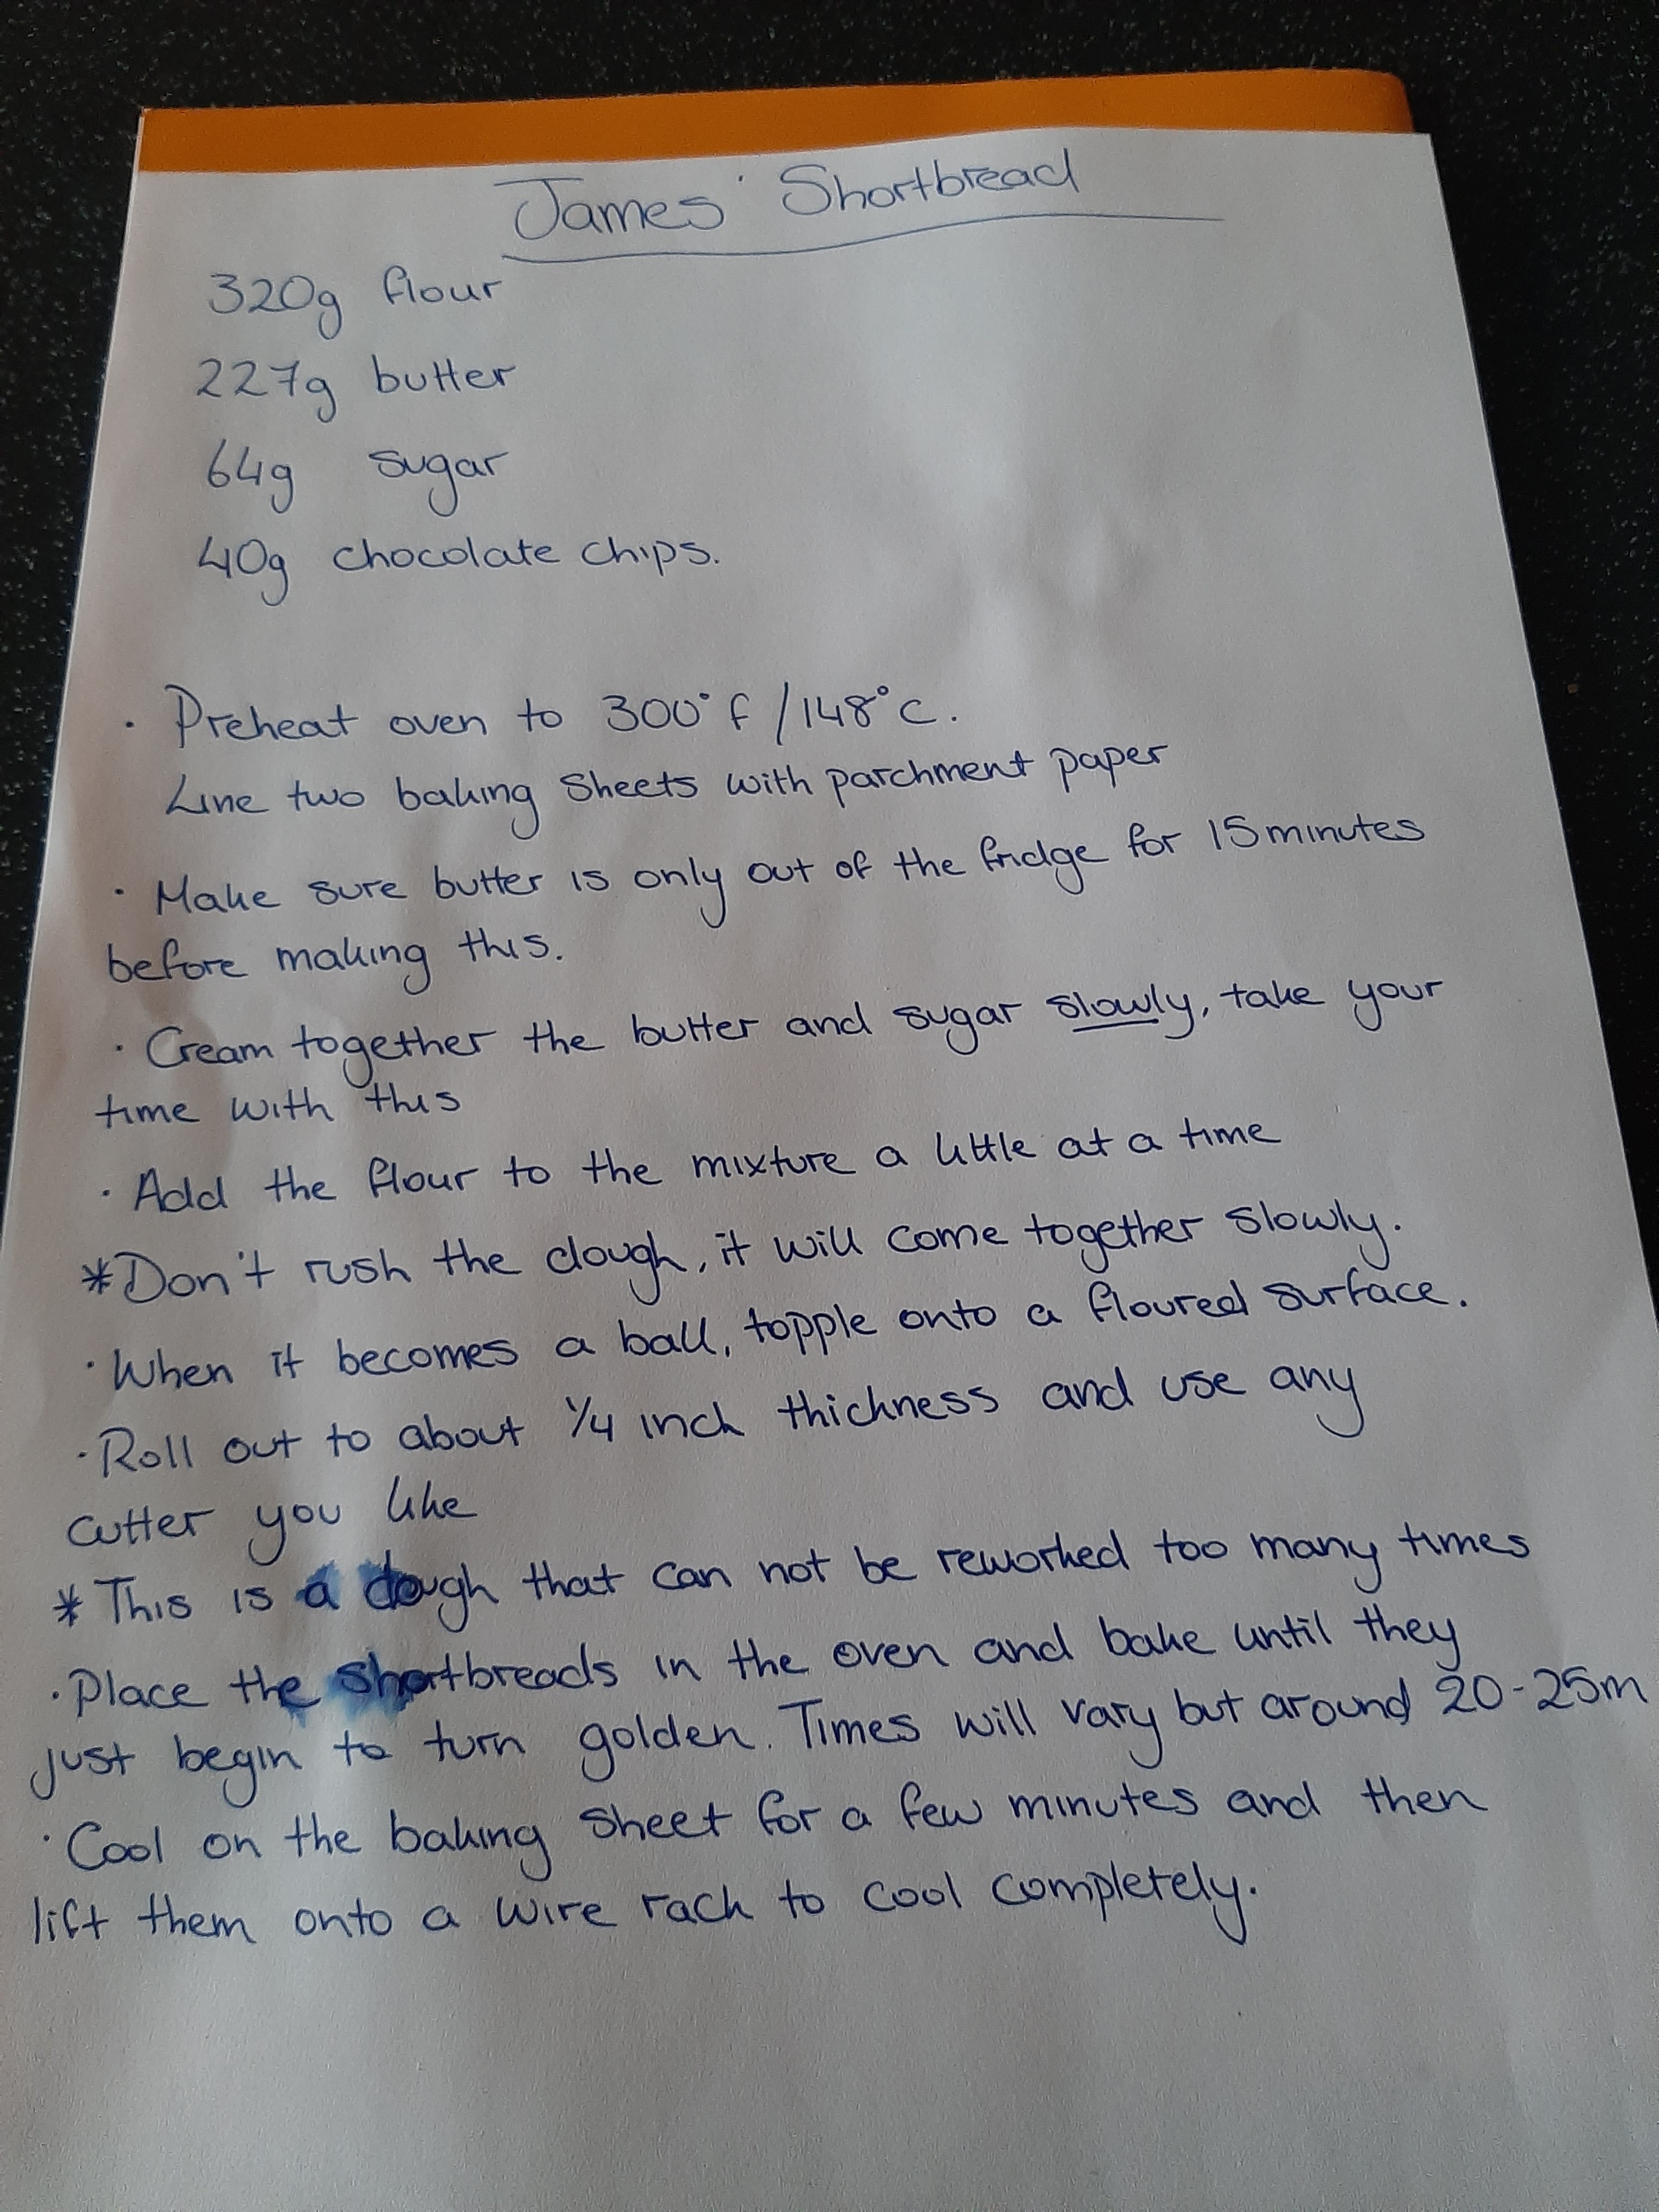 James' Shortbread
320g flour
227g butter
64g sugar
40g chocolate chips.
· Preheat oven to 300°f/148°c.
Line two baking sheets with parchment paper
· Make sure butter is only out of the fridge for 15 minutes
before making this.
· Cream together the butter and sugar slowly, take your
time with this
· Add the flour to the mixture a little at a time
*Don't rush the dough, it will come together slowly.
· When it becomes a ball, topple onto a floured surface.
· Roll out to about 1/4 inch thickness and use any
cutter you like
* This is a dough that can not be reworked too many times
· Place the shortbreads in the oven and bake until they
just begin to turn golden. Times will vary but around 20-25m
· Cool on the baking sheet for a few minutes and then
lift them onto a wire rack to cool completely.